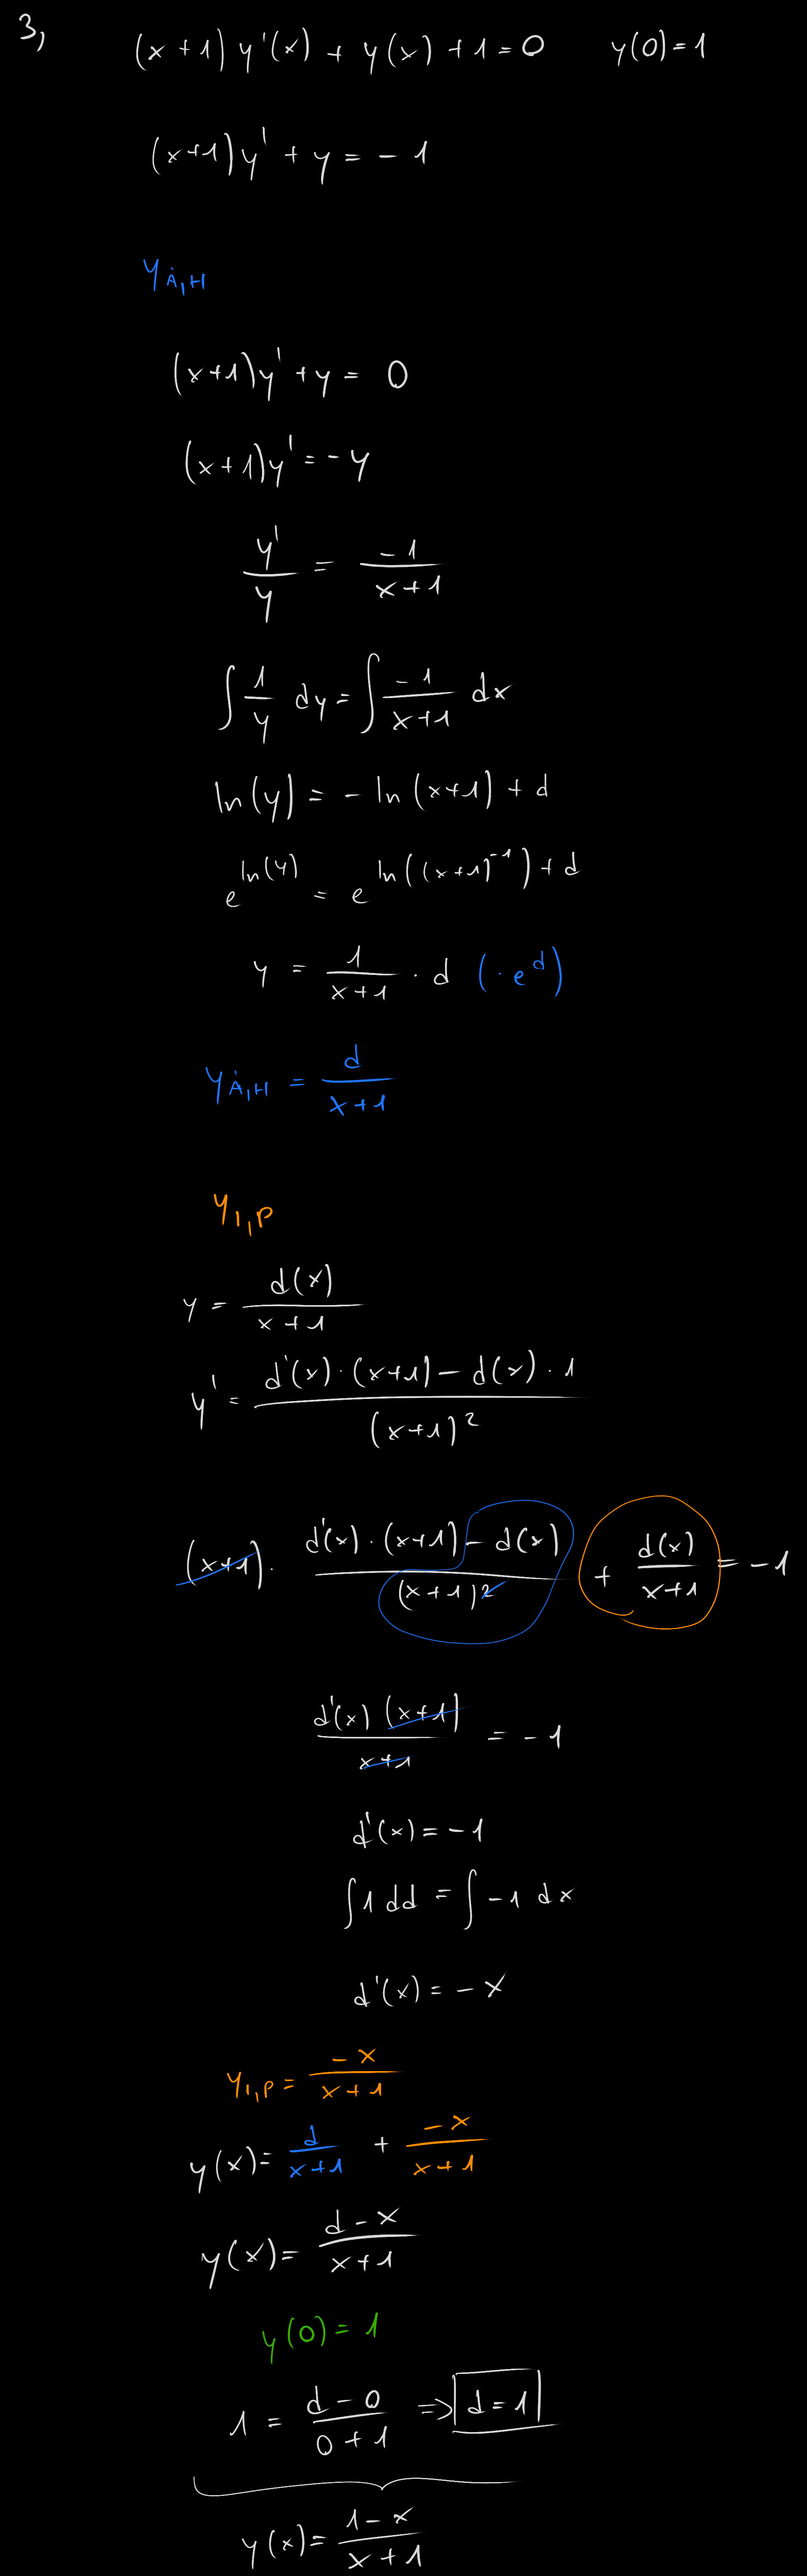 3, (x+1) y'(x) + y(x) + 1 = 0 y(0) = 1
(x+1) y' + y = -1
y_{Á,H}
(x+1) y' + y = 0
(x+1) y' = -y
\frac{y'}{y} = \frac{-1}{x+1}
∫ \frac{1}{y} dy = ∫ \frac{-1}{x+1} dx
ln(y) = - ln(x+1) + d
e^{ln(y)} = e^{ln((x+1)^{-1}) + d}
y = \frac{1}{x+1} · d (· e^d)
y_{Á,H} = \frac{d}{x+1}
y_{I,P}
y = \frac{d(x)}{x+1}
y' = \frac{d'(x) · (x+1) - d(x) · 1}{(x+1)^2}
(x+1) · \frac{d'(x) · (x+1) - d(x)}{(x+1)^2} + \frac{d(x)}{x+1} = -1
\frac{d'(x) (x+1)}{x+1} = -1
d'(x) = -1
∫ 1 dd = ∫ -1 dx
d'(x) = -x
y_{I,P} = \frac{-x}{x+1}
y(x) = \frac{d}{x+1} + \frac{-x}{x+1}
y(x) = \frac{d-x}{x+1}
y(0) = 1
1 = \frac{d-0}{0+1} => d = 1
y(x) = \frac{1-x}{x+1}